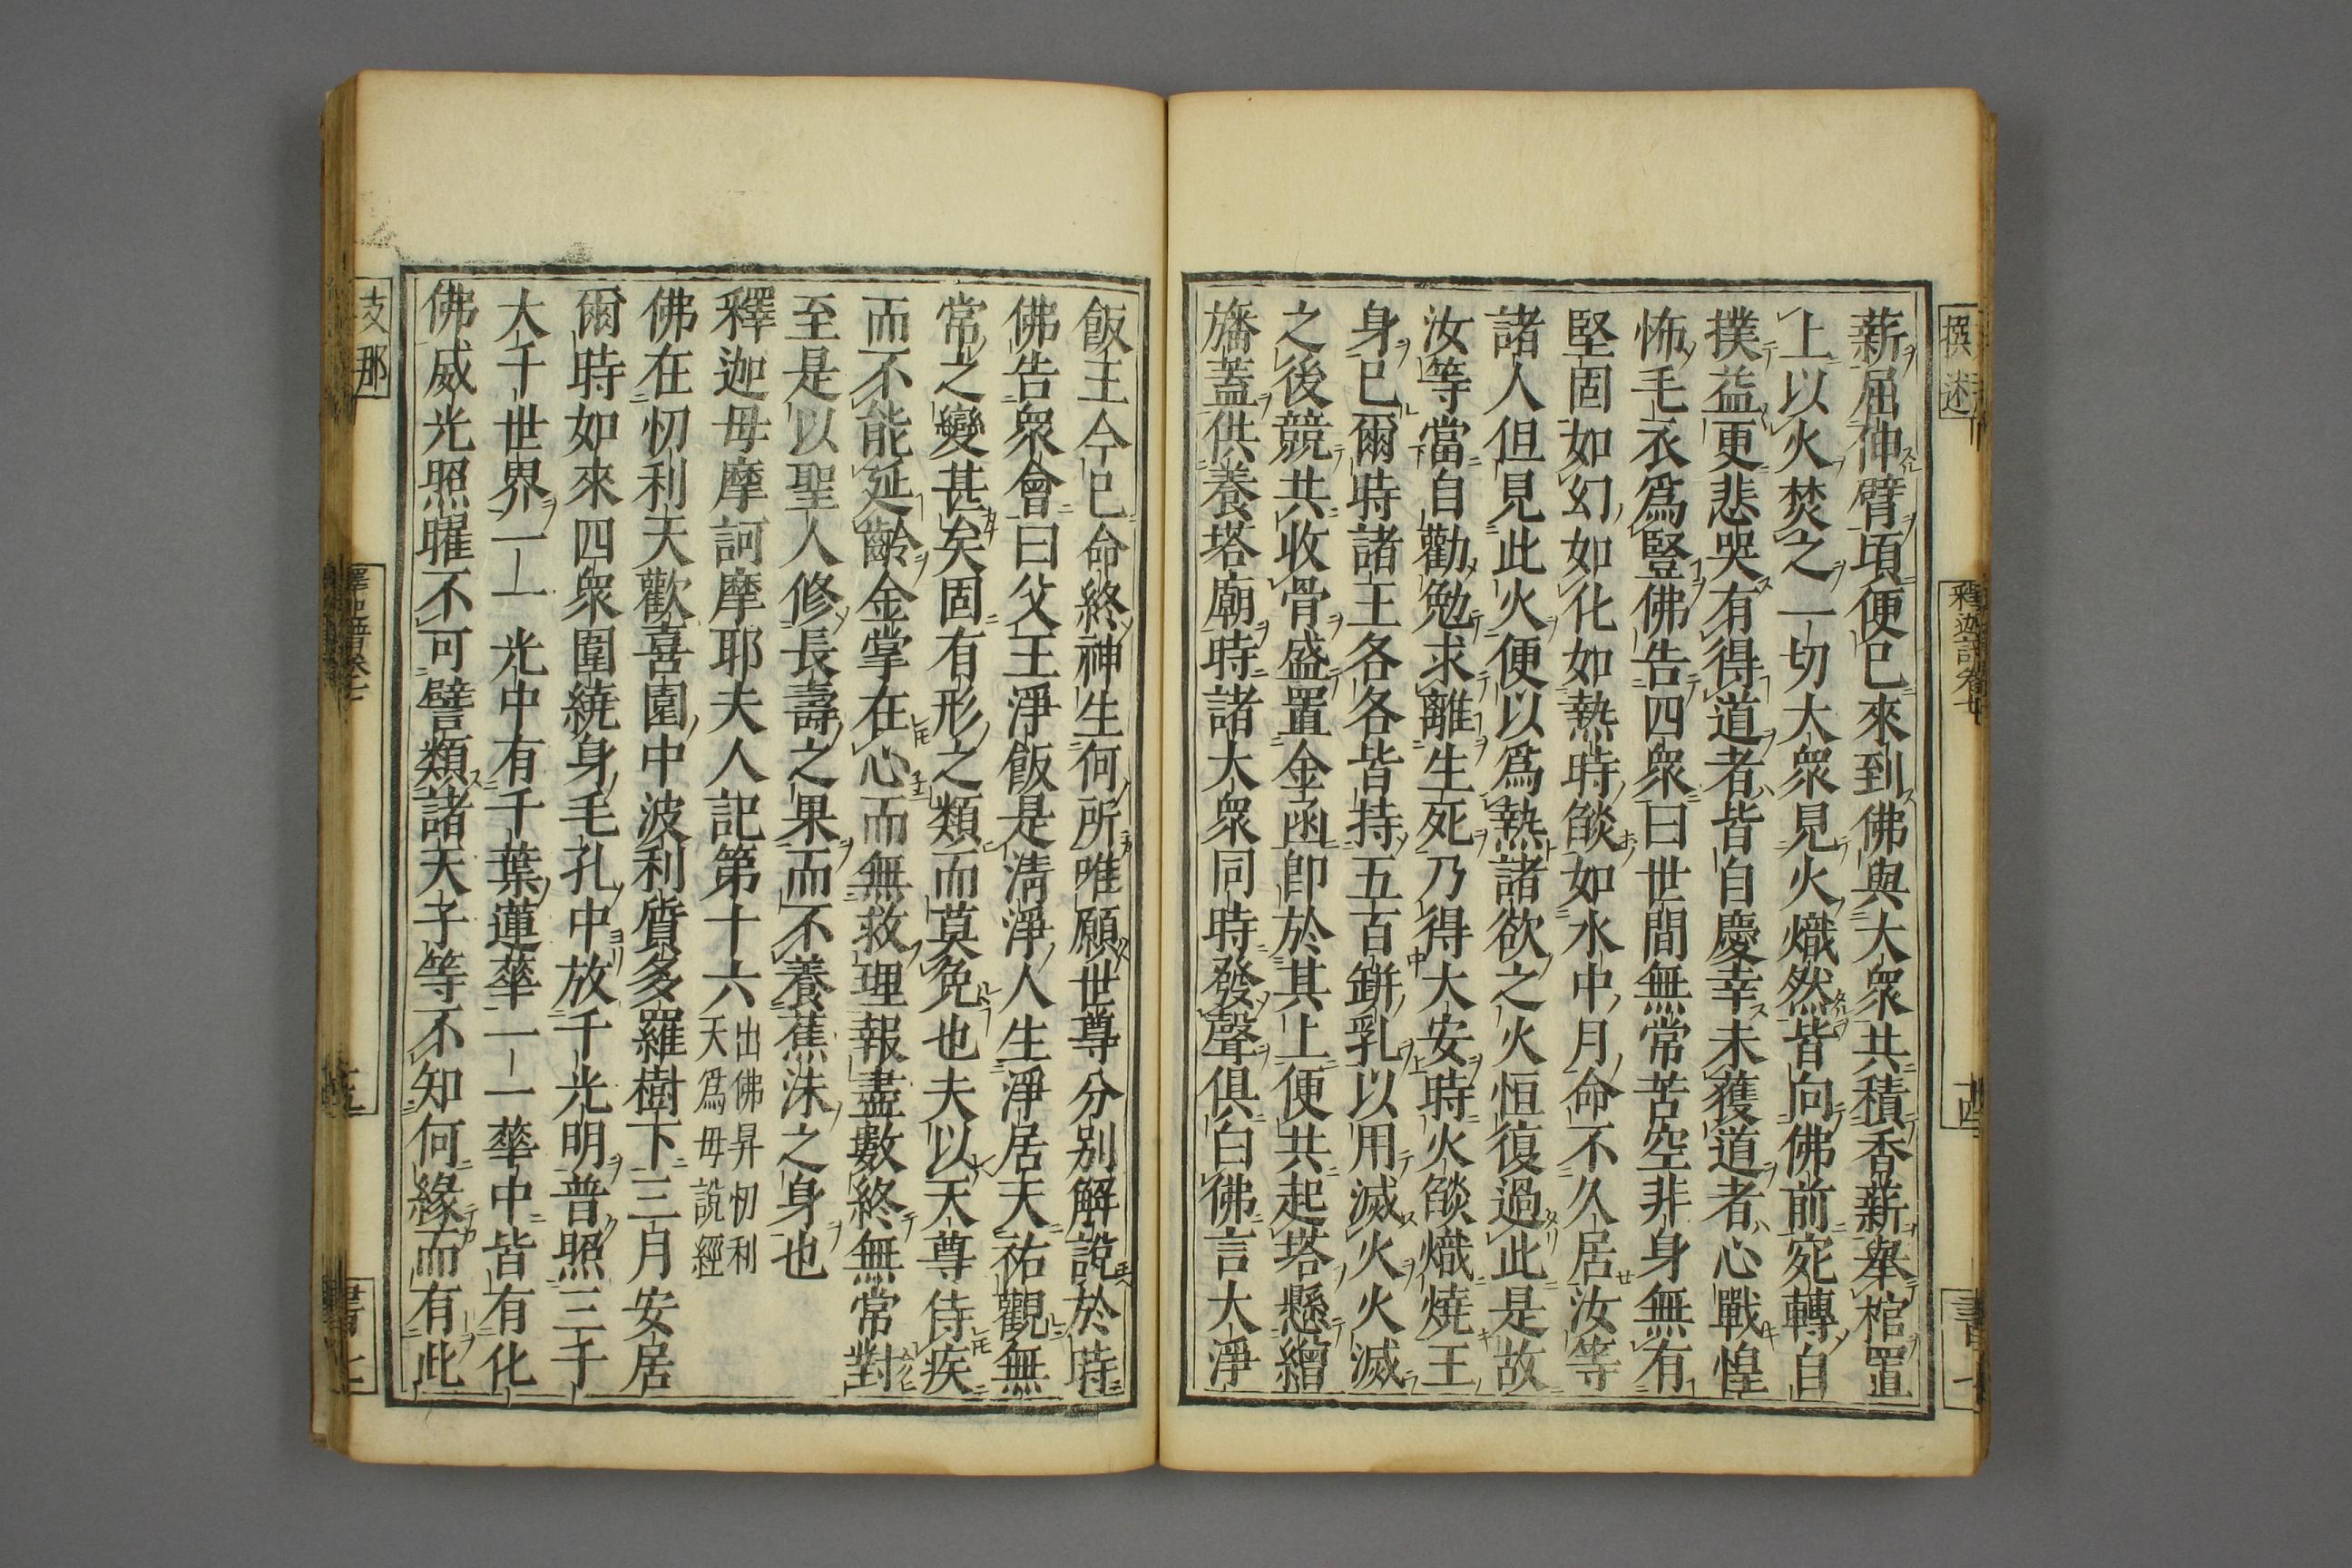 薪屈伸臂頃便已來到佛與大衆共積香薪舉棺置
上以火焚之一切大衆見火熾然皆向佛前宛轉自
撲益更悲哭有得道者皆自慶幸未獲道者心戰惶
怖毛衣爲豎佛告四衆曰世間無常苦空非身無有
堅固如幻如化如熱時燄如水中月命不久居汝等
諸人但見此火便以爲熱諸欲之火恒復過此是故
汝等當自勸勉求離生死乃得大安時火燄熾燒王
身已爾時諸王各各皆持五百缾乳以用滅火火滅
之後競共收骨盛置金函即於其上便共起塔懸繒
旛蓋供養塔廟時諸大衆同時發聲俱白佛言大淨
飯王今已命終神生何所唯願世尊分別解說於時
佛告衆會曰父王淨飯是清淨人生淨居天祐觀無
常之變甚矣固有形之類而莫免也夫以天尊侍疾
而不能延齡金掌在心而無救理報盡數終無常對
至是以聖人修長壽之果而不養蕉沫之身也
釋迦母摩訶摩耶夫人記第十六出佛昇忉利天爲母說經
佛在忉利天歡喜園中波利質多羅樹下三月安居
爾時如來四衆圍繞身毛孔中放千光明普照三千
大千世界一一光中有千葉蓮華一一華中皆有化
佛威光照曜不可譬類諸天子等不知何緣而有此
撰述
釋迦譜卷七
十四
書七
支那